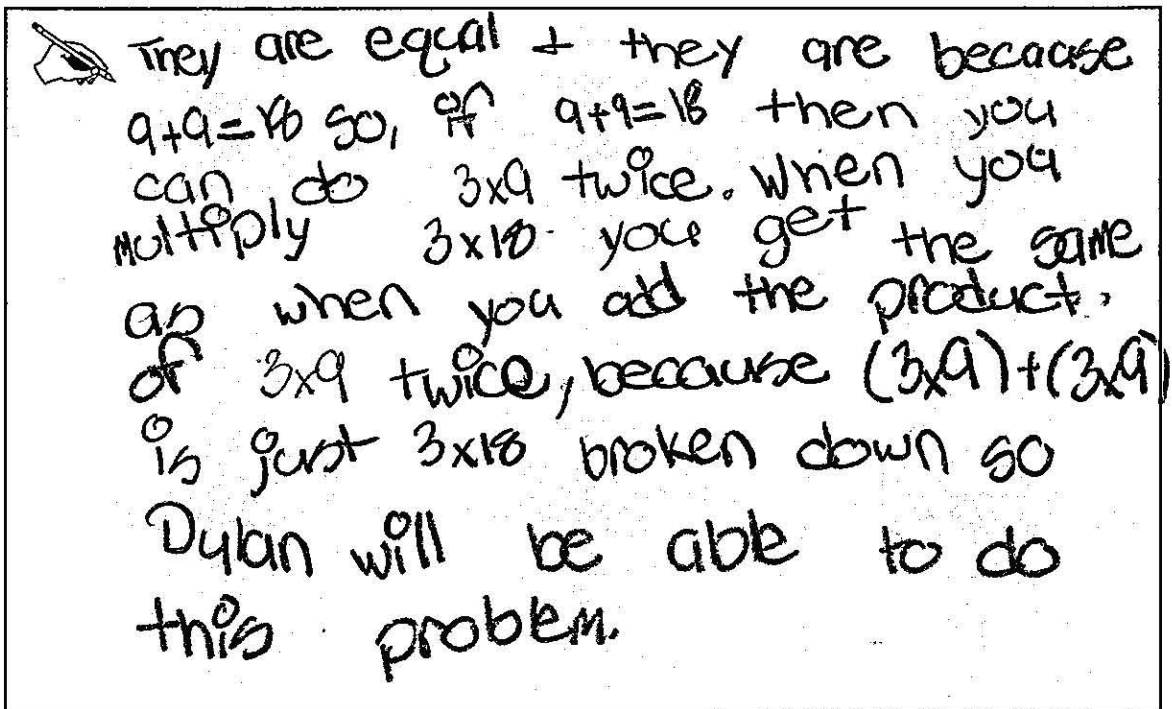 They are equal + they are because
9+9=18 so, if 9+9=18 then you
can do 3x9 twice. When you
multiply 3x18 you get the same
as when you add the product
of 3x9 twice, because (3x9)+(3x9)
is just 3x18 broken down so
Dylan will be able to do
this problem.